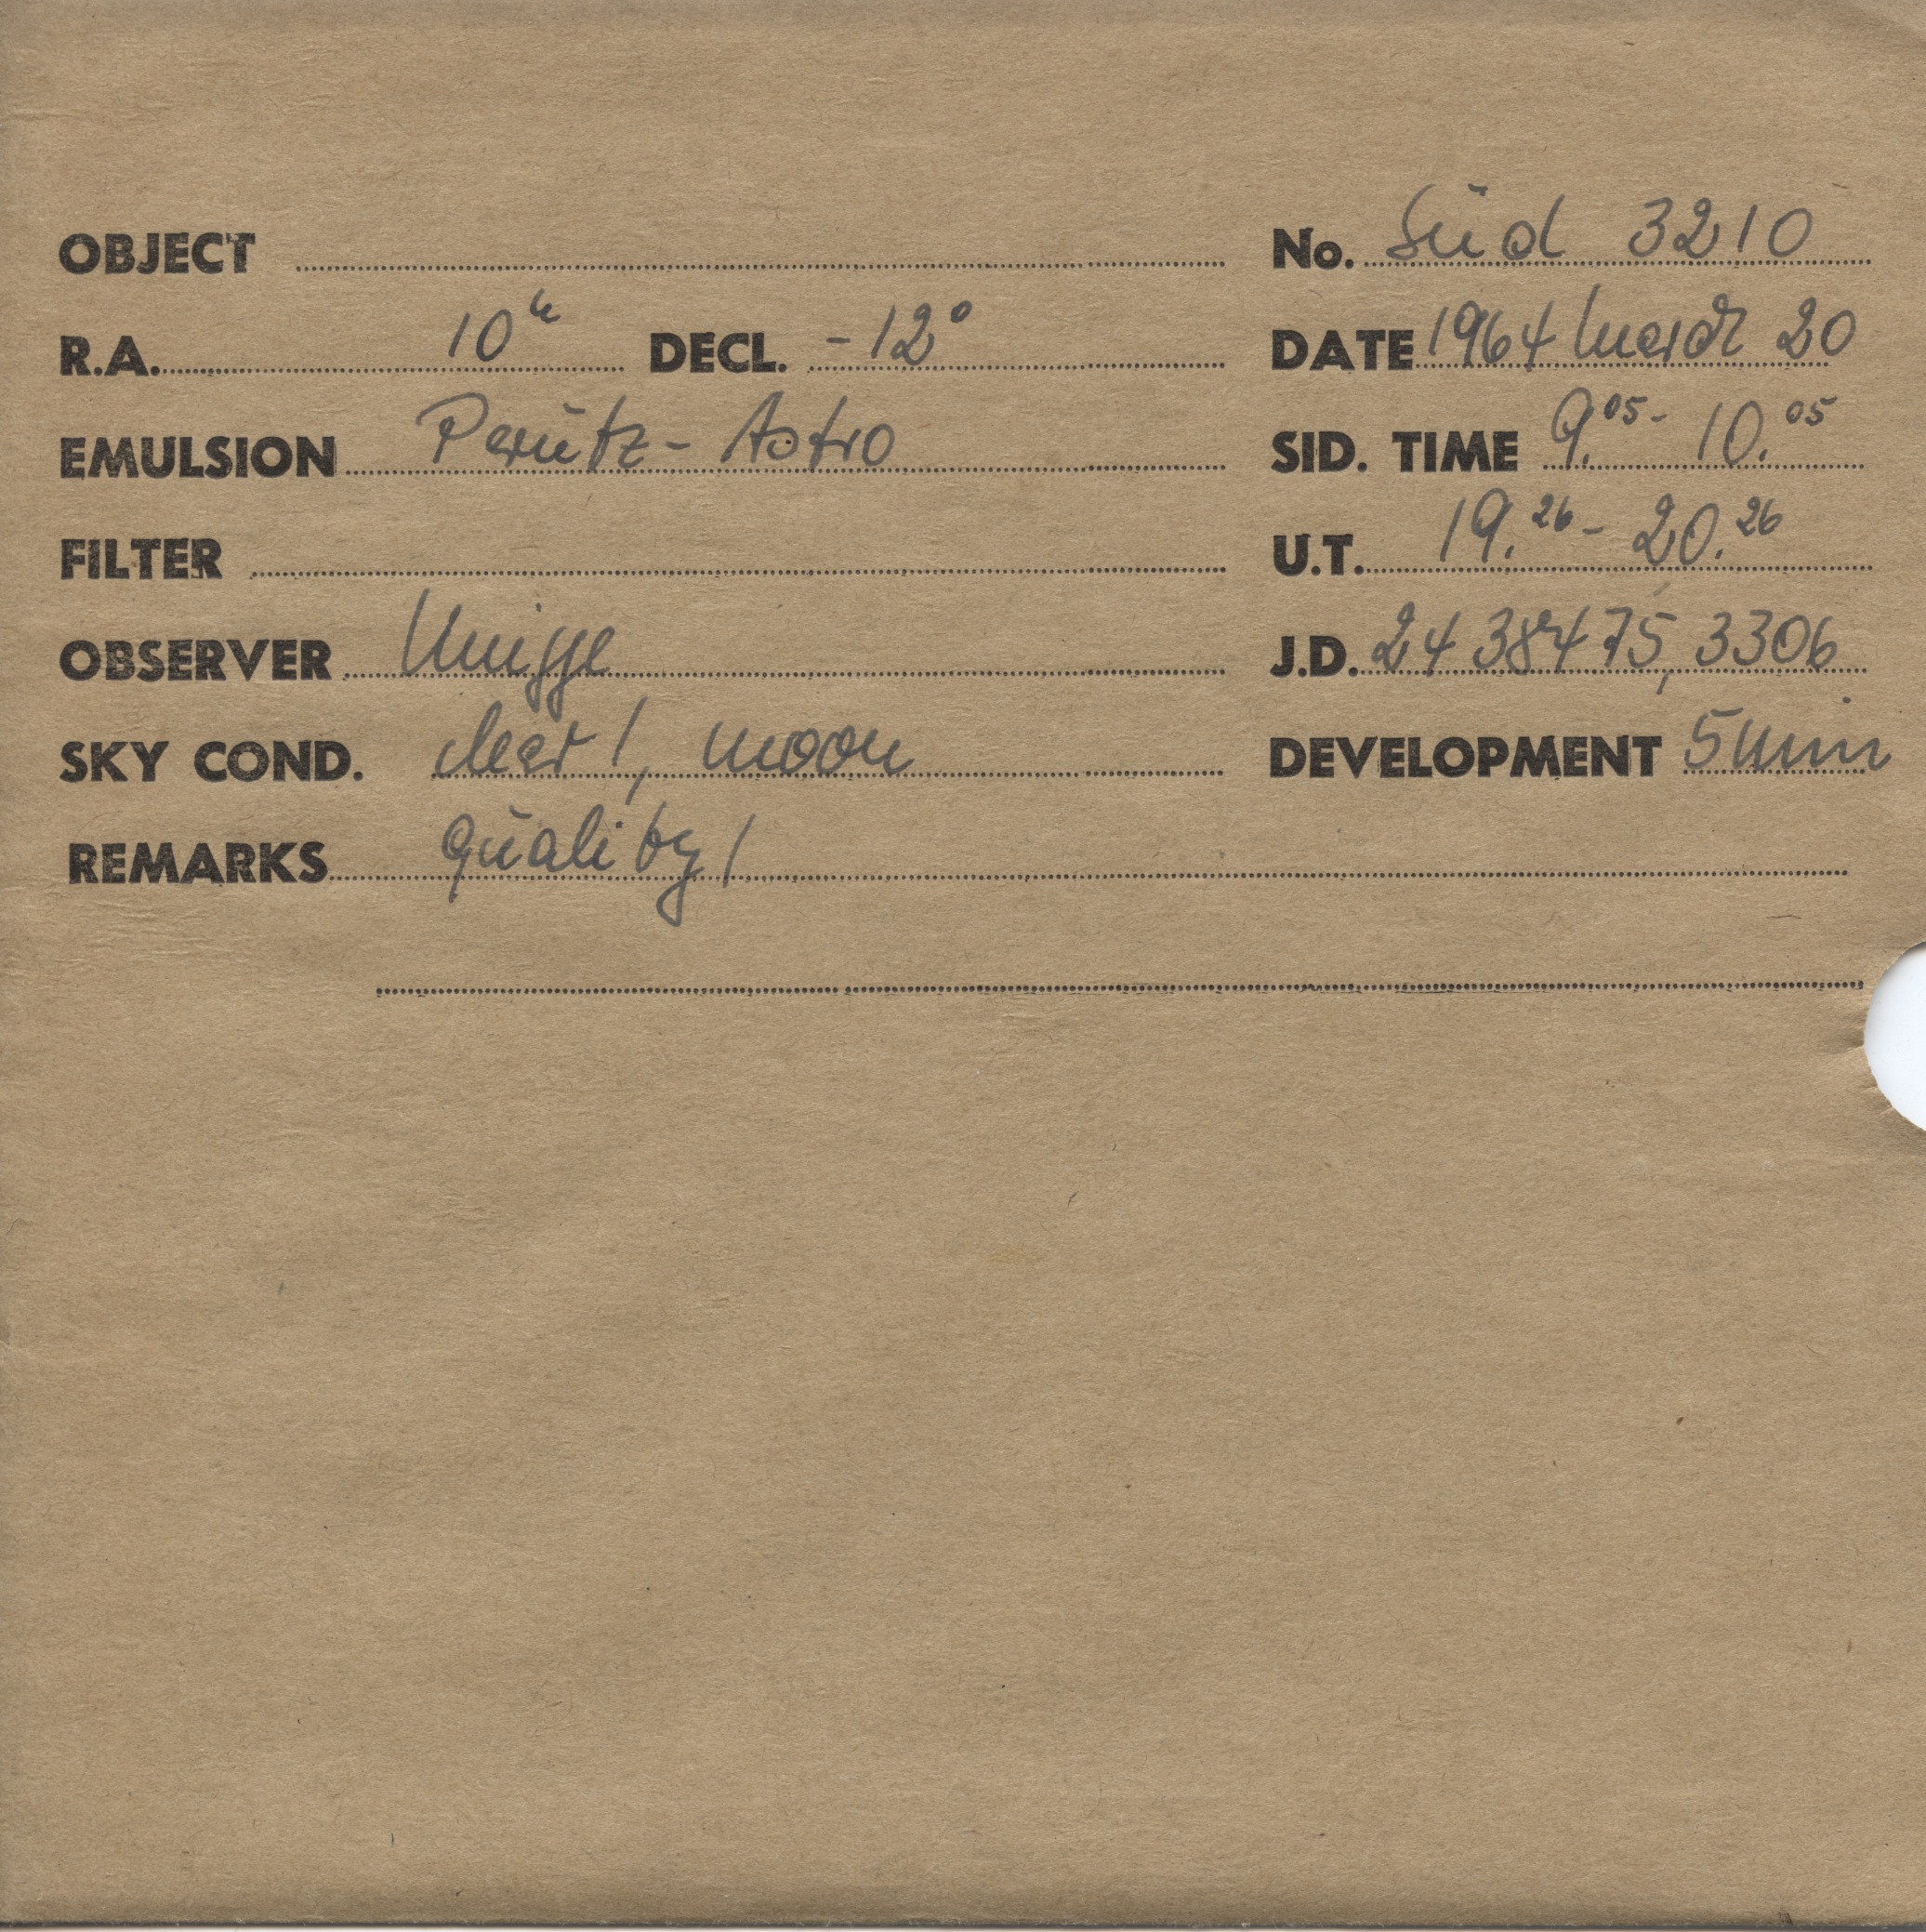 OBJECT
No. Süd 3210
R.A. 10h DECL. -12°
DATE 1964 March 20
EMULSION Perutz - Astro
SID. TIME 9.05 - 10.05
FILTER
U.T. 19.26 - 20.26
OBSERVER
J.D. 2438475,3306
SKY COND. clear!, moon
DEVELOPMENT 5 min
REMARKS quality 1